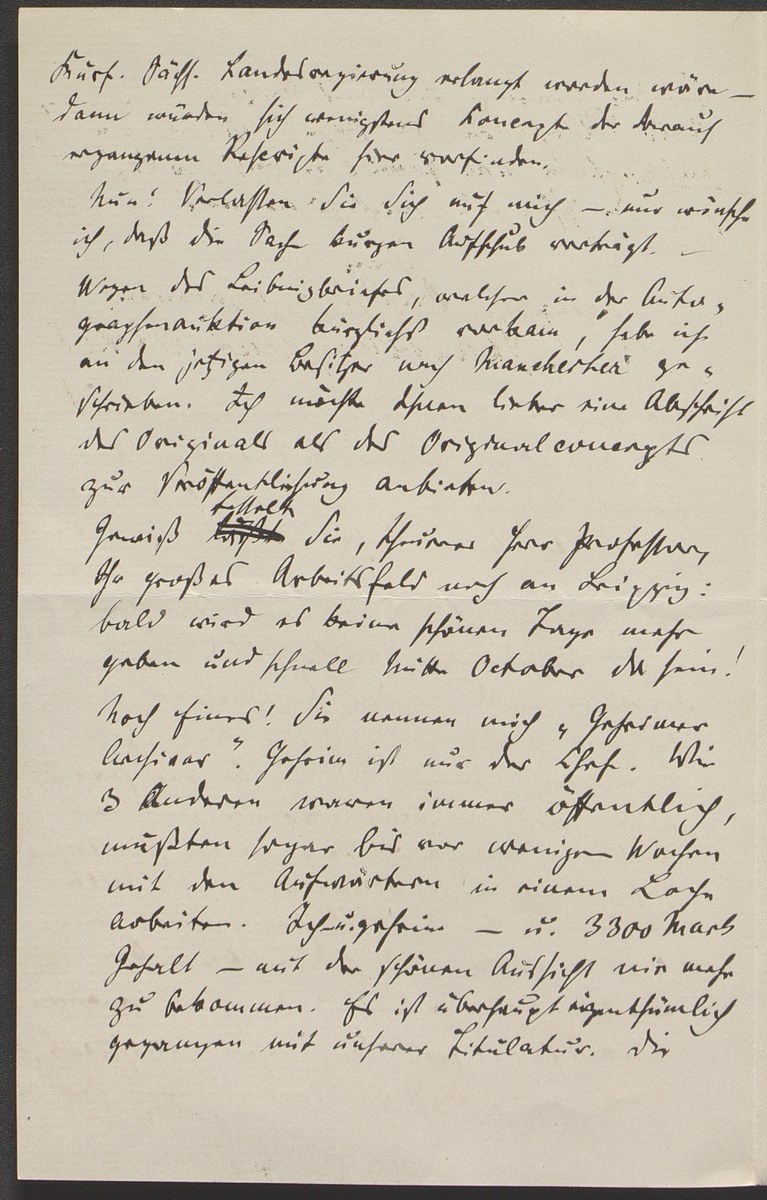 Kurf. Sächs. Landesregierung erlangt worden wäre —
dann würden sich wenigstens Koncepte der darauf
ergangenen Rescripte hier vorfinden.
Nun! Verlassen Sie Sich auf mich — nur wünsche
ich, daß die Sache kurzen Aufschub verträgt. —
Wegen des Leibnizbriefes, welcher in der Auto-
graphenauktion kürzlichst vorkam, habe ich
an den jetzigen Besitzer nach Manchester ge-
schrieben. Ich möchte Ihnen lieber eine Abschrift
des Originals als des Originalconcepts
zur Veröffentlichung anbieten.
Gewiß fesselt Sie, theurer Herr Professor,
Ihr großes Arbeitsfeld noch an Leipzig:
bald wird es keine schönen Tage mehr
geben und schnell Mitte October da sein!
Noch Eines! Sie nennen mich „Geheimer
Archivar". Geheim ist nur der Chef. Wir
3 Anderen waren immer öffentlich,
mußten sogar bis vor wenigen Wochen
mit den Aufwärtern in einem Loche
arbeiten. — u. 3300 Mark
Gehalt — mit der schönen Aussicht nie mehr
zu bekommen. Es ist überhaupt eigenthümlich
gegangen mit unserer Titulatur. Die